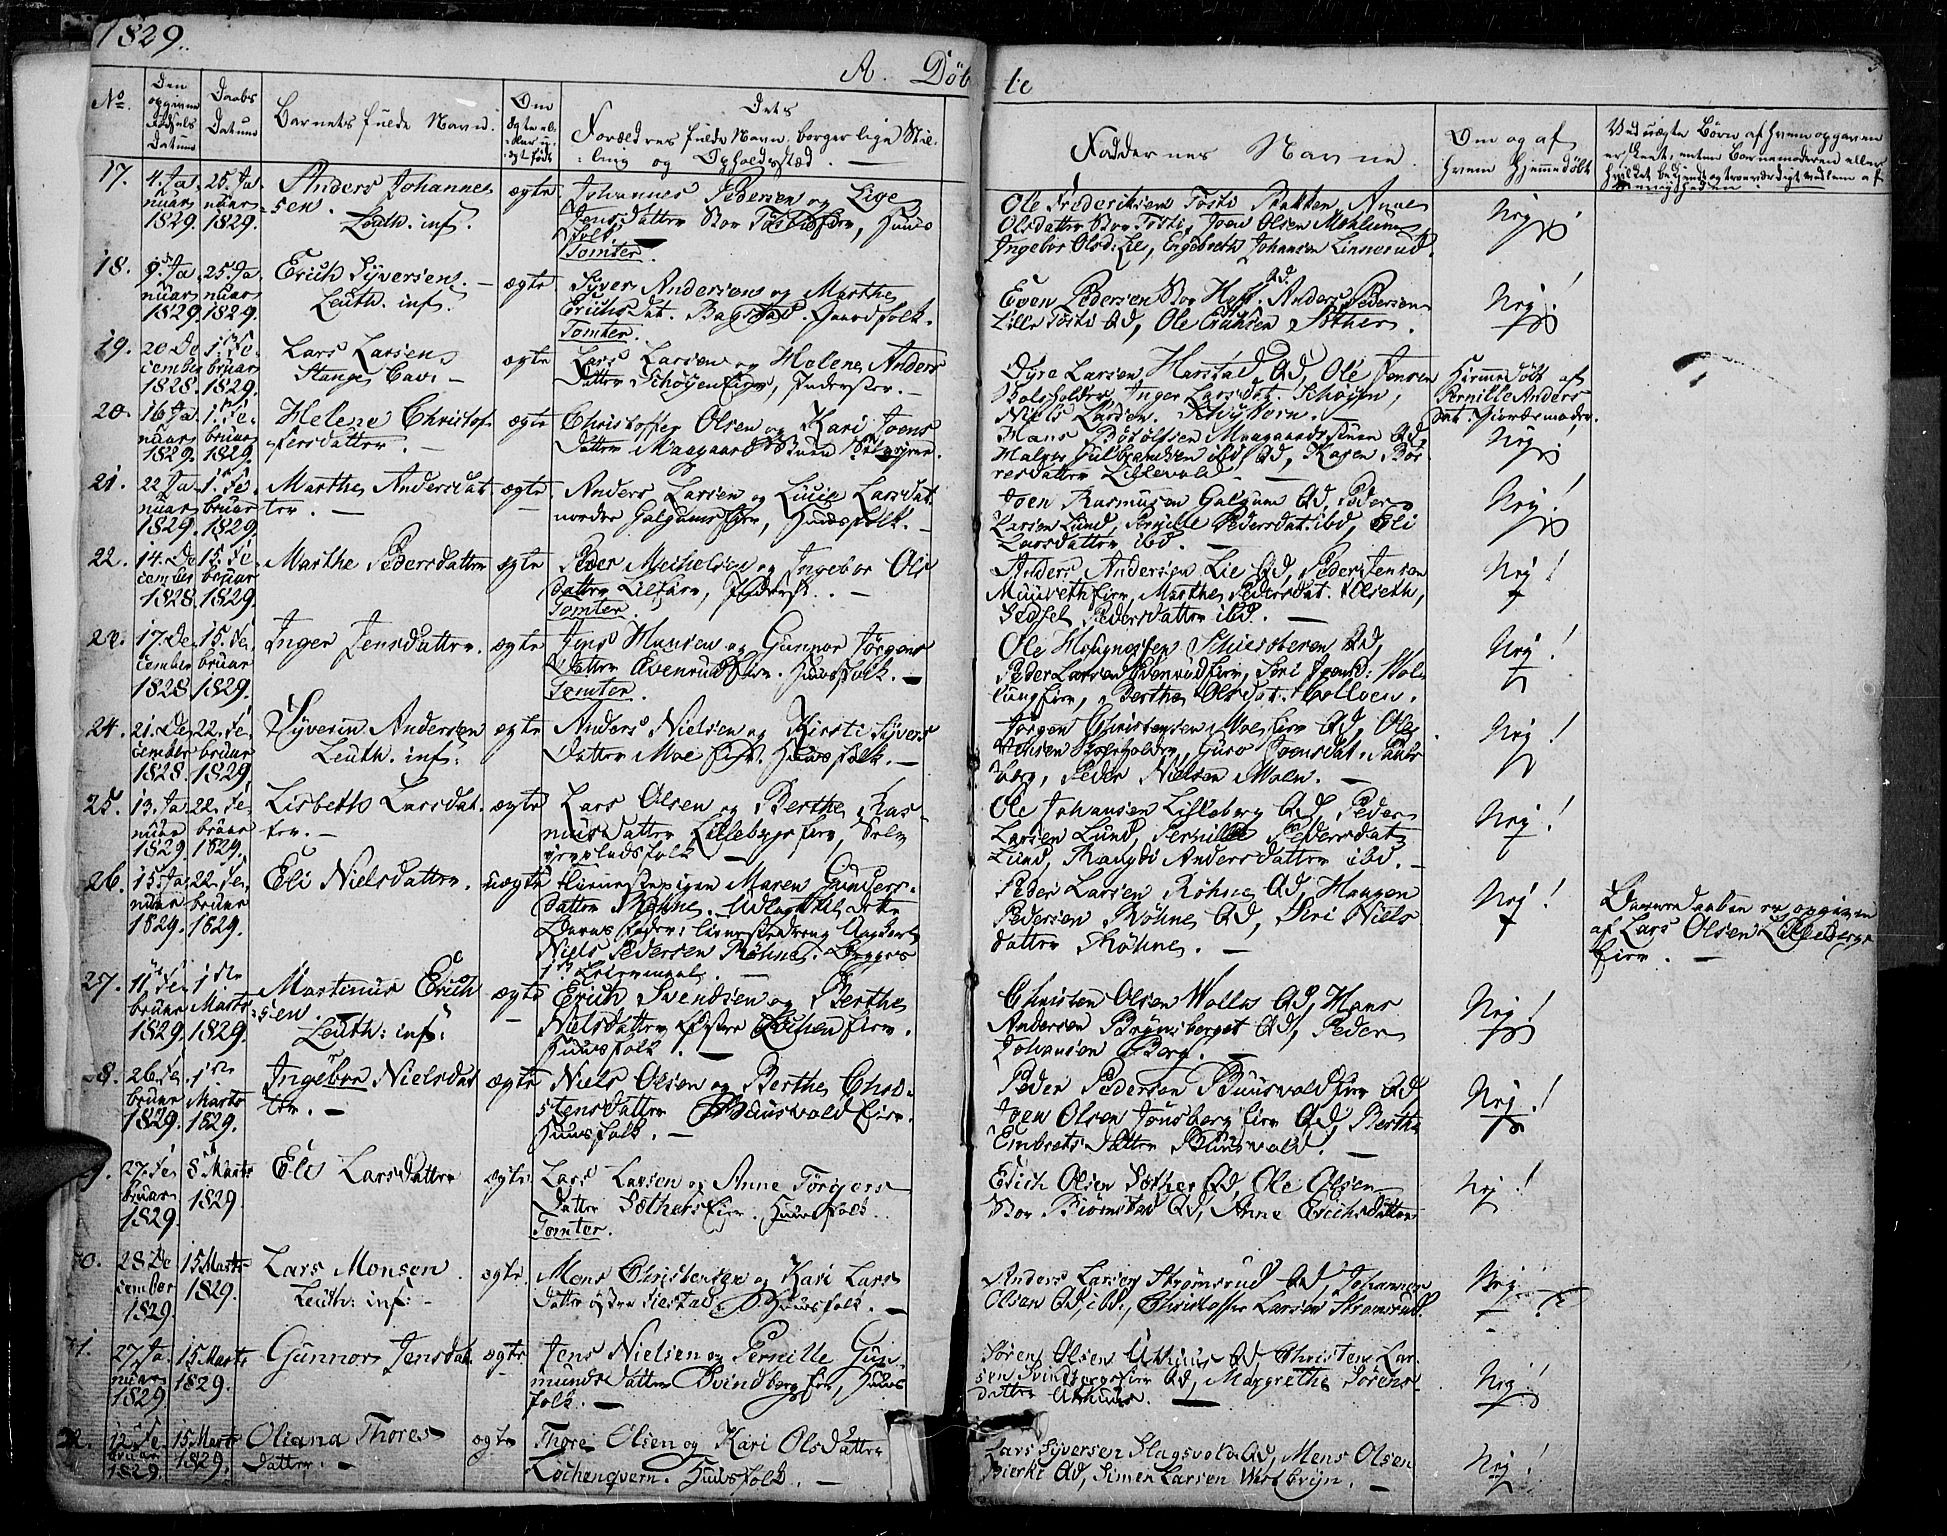 1829.
A. Døb
te
No.
Den opgivne Fødsels Datum
Daabs Datum
Barnets fulde Navn.
Om ægte eller uægte født
Dets Forældres fulde Navn, borgerlige Stilling og Opholdsstæd.
Faddernes Navne.
Om og af hvem Hjemmedøbt
Ved uægte Børn af hvem opgaven er skeet, enten Barnemoderen eller hvilket bekjendt og troværdigt Medlem af Menigheden
17. 4. Januar 1829. 25. Januar 1829. Anders Johannessen. Leuth. inf. ægte
Johannes Pedersen og Lige
Jensdatter Stor Tøsti Eier, Huusfolk
Tomter.
Ole Frederiksen Tøsti Anne
Olsdatter Stor Tøsti, Joen Olsen Mohlum,
Ingebor Olsd: Lie, Engebreth Johansen Linnerud.
Nej!
18. 9. Januar 1829. 25. Januar 1829. Erich Syversen. Leuth. inf. ægte
Syver Andersen og Marthe
Erichsdat. Bagstad. Gaardfolk.
Tomter.
Even Pedersen Stor Hoff. Qd. Anders Pedersen
Lille Tøsti Qd, Ole Erichsen Søther.
Nej!
19. 20 December 1828. 1. Februar 1829. Lars Larsen Stange Cav. ægte
Lars Larsen og Helene Anders
datter Schøyen Eier, Inderster.
Dyre Larsen Harstad Qd, Ole Jensen
Inger Larsdat. Schøyen,
Niels Larsen
Hjemmedøbt af
Pernille Anders
dat. Giordemoder.
20. 16 Januar 1829. 1. Februar 1829. Helene Christoffersdatter. ægte
Christoffer Olsen og Kari Joens
datter Maagaard Stuen
Hans Maagaardstuen Qd,
Halvor Gulbrandsen ibd, Qd, Karen Bør
resdatter Lillevold.
Nej
21. 22 Januar 1829. 1. Februar 1829. Marthe Andersdatter. ægte
Anders Larsen og Lucie Larsdat.
nordre Galgum Eier, Huusfolk.
Joen Rasmusen Galgum Qd, Peder
Larsen Lund, Pernille Pedersdat. ibd, Eli
Larsdatter ibd.
Nej!
22. 14. December 1828. 15. Februar 1829. Marthe Pedersdatter ægte
Peder Michelsen og Ingebor Ols
datter
Tomter.
Anders Andersen Lie Qd, Peder Jensen
Marthe Pedersdat.
Sidsel Pedersdatter ibd.
Nej!
23. 17. December 1828 15. Februar 1829. Inger Jensdatter. ægte
Jens Hansen og Gunnor Jørgens
datter Evenrud Eier. Huusfolk.
Tomter.
Ole Qd,
Peder Larsen Evenrud Eier, Siri
Eier, Berthe Olsdat.
Nej!
24. 21. December 1828. 22. Februar 1829. Syverin Andersen Leuth. inf. ægte
Anders Nielsen og Kirsti Syvers
datter Moe Eier. Huusfolk.
Jørgen Christensen Moe Eier Qd, Ole
Guro Joensdat.
berg, Peder Nielsen Moen.
Nej!
25. 13. Januar 1829. 22. Februar 1829. Lisbeth Larsdatter. ægte
Lars Olsen og Berthe Ras
musdatter Lilleberg Eier,
Ole Johansen Lilleberg Qd, Peder
Larsen Lund, Pernille Pedersdat.
Lund, Rangdi Andersdatter ibd.
Nej!
26. 15. Januar 1829. 22. Februar 1829. Eli Nielsdatter. uægte
Tienestepigen Maren Gunders
datter Røhne. Udlagt til dette
Barns Fader: Tienestedreng Ungkarl
Niels Pedersen Røhne. Begges
1ste Leiermaal.
Peder Larsen Røhne Qd, Haagen
Pedersen Røhne Qd, Siri Niels
datter Røhne.
Nej!
Barnedaaben er opgiven
af Lars Olsen Lilleberg
Eier.
27. 11. Februar 1829. 1ste Marts 1829. Martinus Erichsen. Leuth: inf: ægte
Erich Svendsen og Berthe
Nielsdatter Løchen Eier.
Huusfolk.
Christen Olsen Wolla Qd, Hans
Andersen Brynsberget Qd, Peder
Johansen Berg.
Nej!
28. 26. Februar 1829. 1ste Marts 1829. Ingebor Nielsdatter. ægte
Niels Olsen og Berthe Chri
stensdatter Buusvold Eier.
Huusfolk.
Peder Pedersen Buusvold Eier Qd,
Joen Olsen Jønsberg Eier Qd, Berthe
Embretsdatter Buusvold.
Nej!
9. 27. Februar 1829. 8 Marts 1829. Eli Larsdatter ægte
Lars Larsen og Anne Torgers
datter Søthers Eier. Huusfolk.
Tomter.
Erich Olsen Søther Qd Ole Olsen
Stor Biørnstad Qd, Anne Erichsdatter
Nej!
30. 28 December 1829. 15 Marts 1829. Lars Monsen Leuth: inf: ægte
Mons Christensen og Kari Lars
datter Østre Huusfolk.
Anders Larsen Strømsrud Qd, Johannes
Olsen Qd, ibd., Christoffer Larsen Strømsrud.
Nej
31. 27 Januar 1829 15 Marts 1829. Gunnor Jensdat. ægte
Jens Nielsen og Pernille Gun
mundsdatter Svindberg Eie, Huus
folk.
Søren Olsen Uthuus Qd, Christen Lar
sen Svindbergseier Qd, Margrethe Sørens
datter Uthuus.
Nej!
32. 12 Februar 1829. 15 Marts 1829. Oliana Thores datter. ægte
Thore Olsen og Kari Olsdatter
Løchenqvern. Huusfolk.
Lars Syversen Slagsvold Qd, Mons Olsen
Bierke Qd, Simen Larsen Westbryn.
Nej!